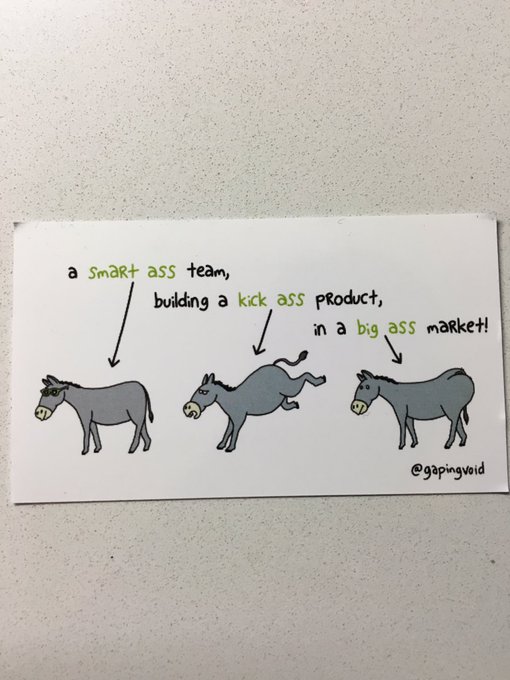 a smart ass team,
building a kick ass product,
in a big ass market!
@gapingvoid